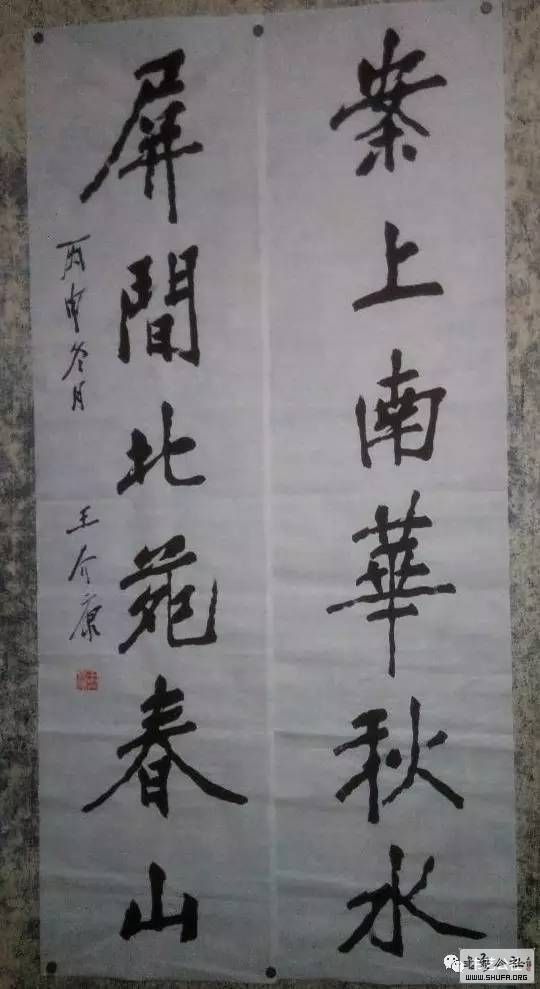 案上南華秋水
屏間北苑春山
丙申冬月
王介康
WWW.SHUFA.ORG